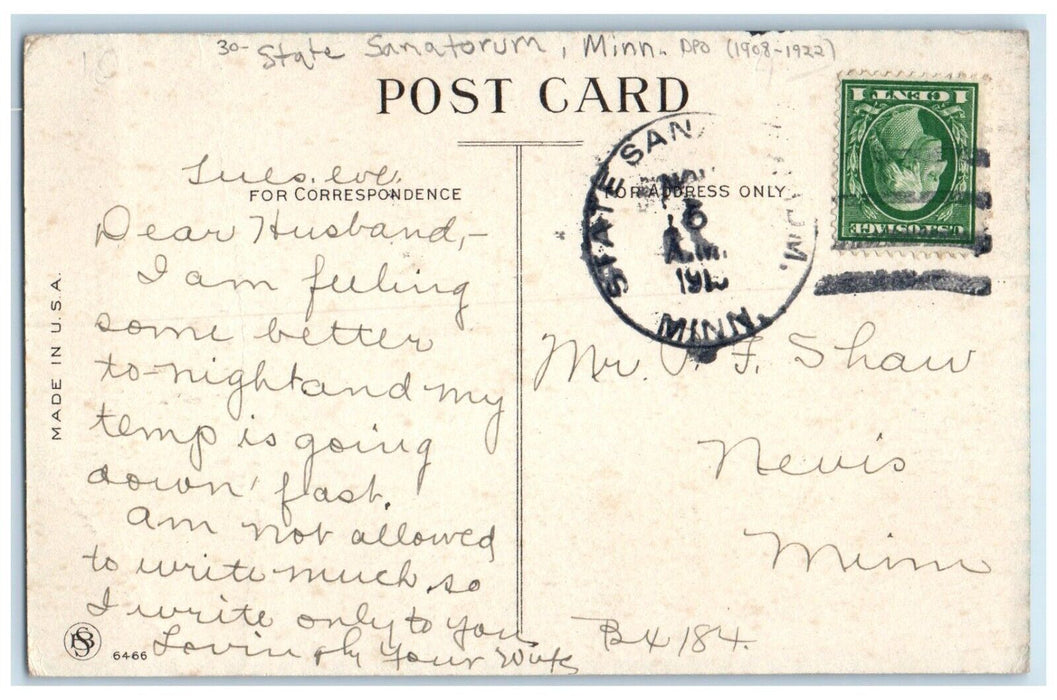 30- State Sanatorum, Minn. DPO (1908-1922)
POST CARD
Tues. eve.
FOR CORRESPONDENCE
Dear Husband,-
I am feeling
some better
to-night and my
temp is going
down fast.
Am not allowed
to write much, so
I write only to you
Lovingly Your Wife
MADE IN U.S.A.
6466
FOR ADDRESS ONLY
STATE SAN
6
A.M.
191
MINN.
1 CENT 1
U.S. POSTAGE
Mr. F. Shaw
Nevis
Minn
Bx 184.